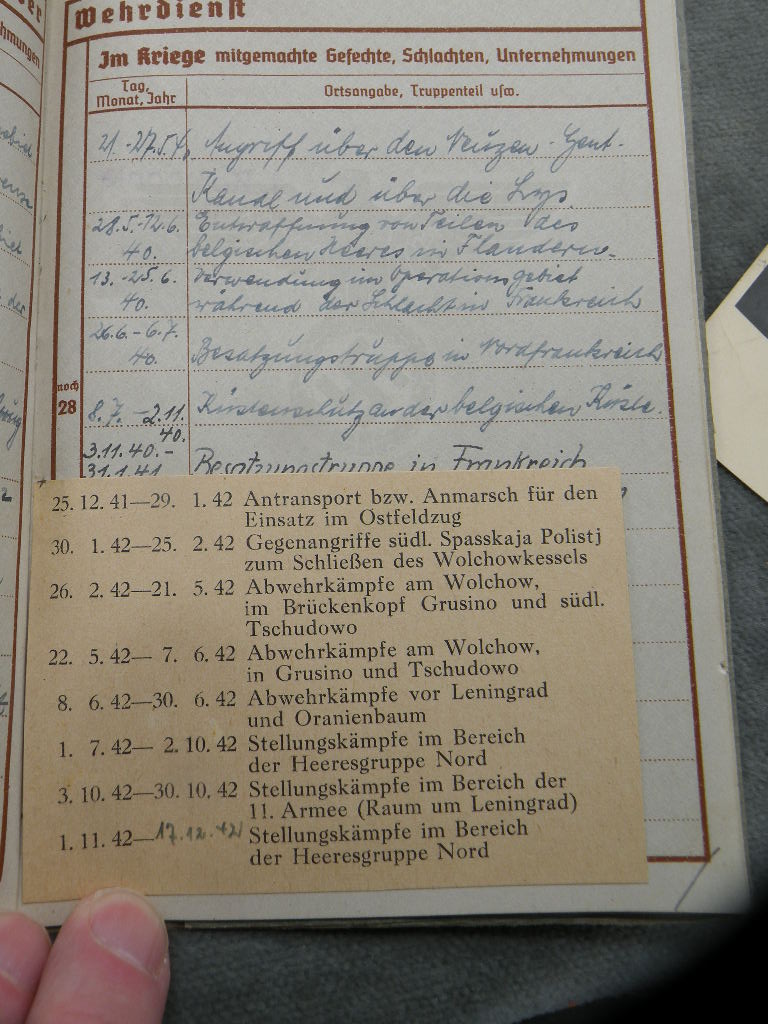 Wehrdienst
Im Kriege mitgemachte Gefechte, Schlachten, Unternehmungen
Tag, Monat, Jahr
Ortsangabe, Truppenteil usw.
21.-27.5. Angriff über den - Gent-
Kanal und über die Lys
28.5.-12.6. Entwaffnung von Teilen des
40. belgischen Heeres in Flandern.
13.-25.6. Verwendung im Operationsgebiet
40. während der Schlacht in Frankreich
26.6.-6.7.
40. Besatzungstruppe in Nordfrankreich
noch
28
8.7.-2.11. Küstenschutz an der belgischen Küste.
40.
3.11.40.-
31.1.41 Besatzungstruppe in Frankreich
25. 12. 41—29. 1. 42 Antransport bzw. Anmarsch für den
Einsatz im Ostfeldzug
30. 1. 42—25. 2. 42 Gegenangriffe südl. Spasskaja Polistj
zum Schließen des Wolchowkessels
26. 2. 42—21. 5. 42 Abwehrkämpfe am Wolchow,
im Brückenkopf Grusino und südl.
Tschudowo
22. 5. 42— 7. 6. 42 Abwehrkämpfe am Wolchow,
in Grusino und Tschudowo
8. 6. 42—30. 6. 42 Abwehrkämpfe vor Leningrad
und Oranienbaum
1. 7. 42— 2. 10. 42 Stellungskämpfe im Bereich
der Heeresgruppe Nord
3. 10. 42—30. 10. 42 Stellungskämpfe im Bereich der
11. Armee (Raum um Leningrad)
1. 11. 42—17.12.42 Stellungskämpfe im Bereich
der Heeresgruppe Nord